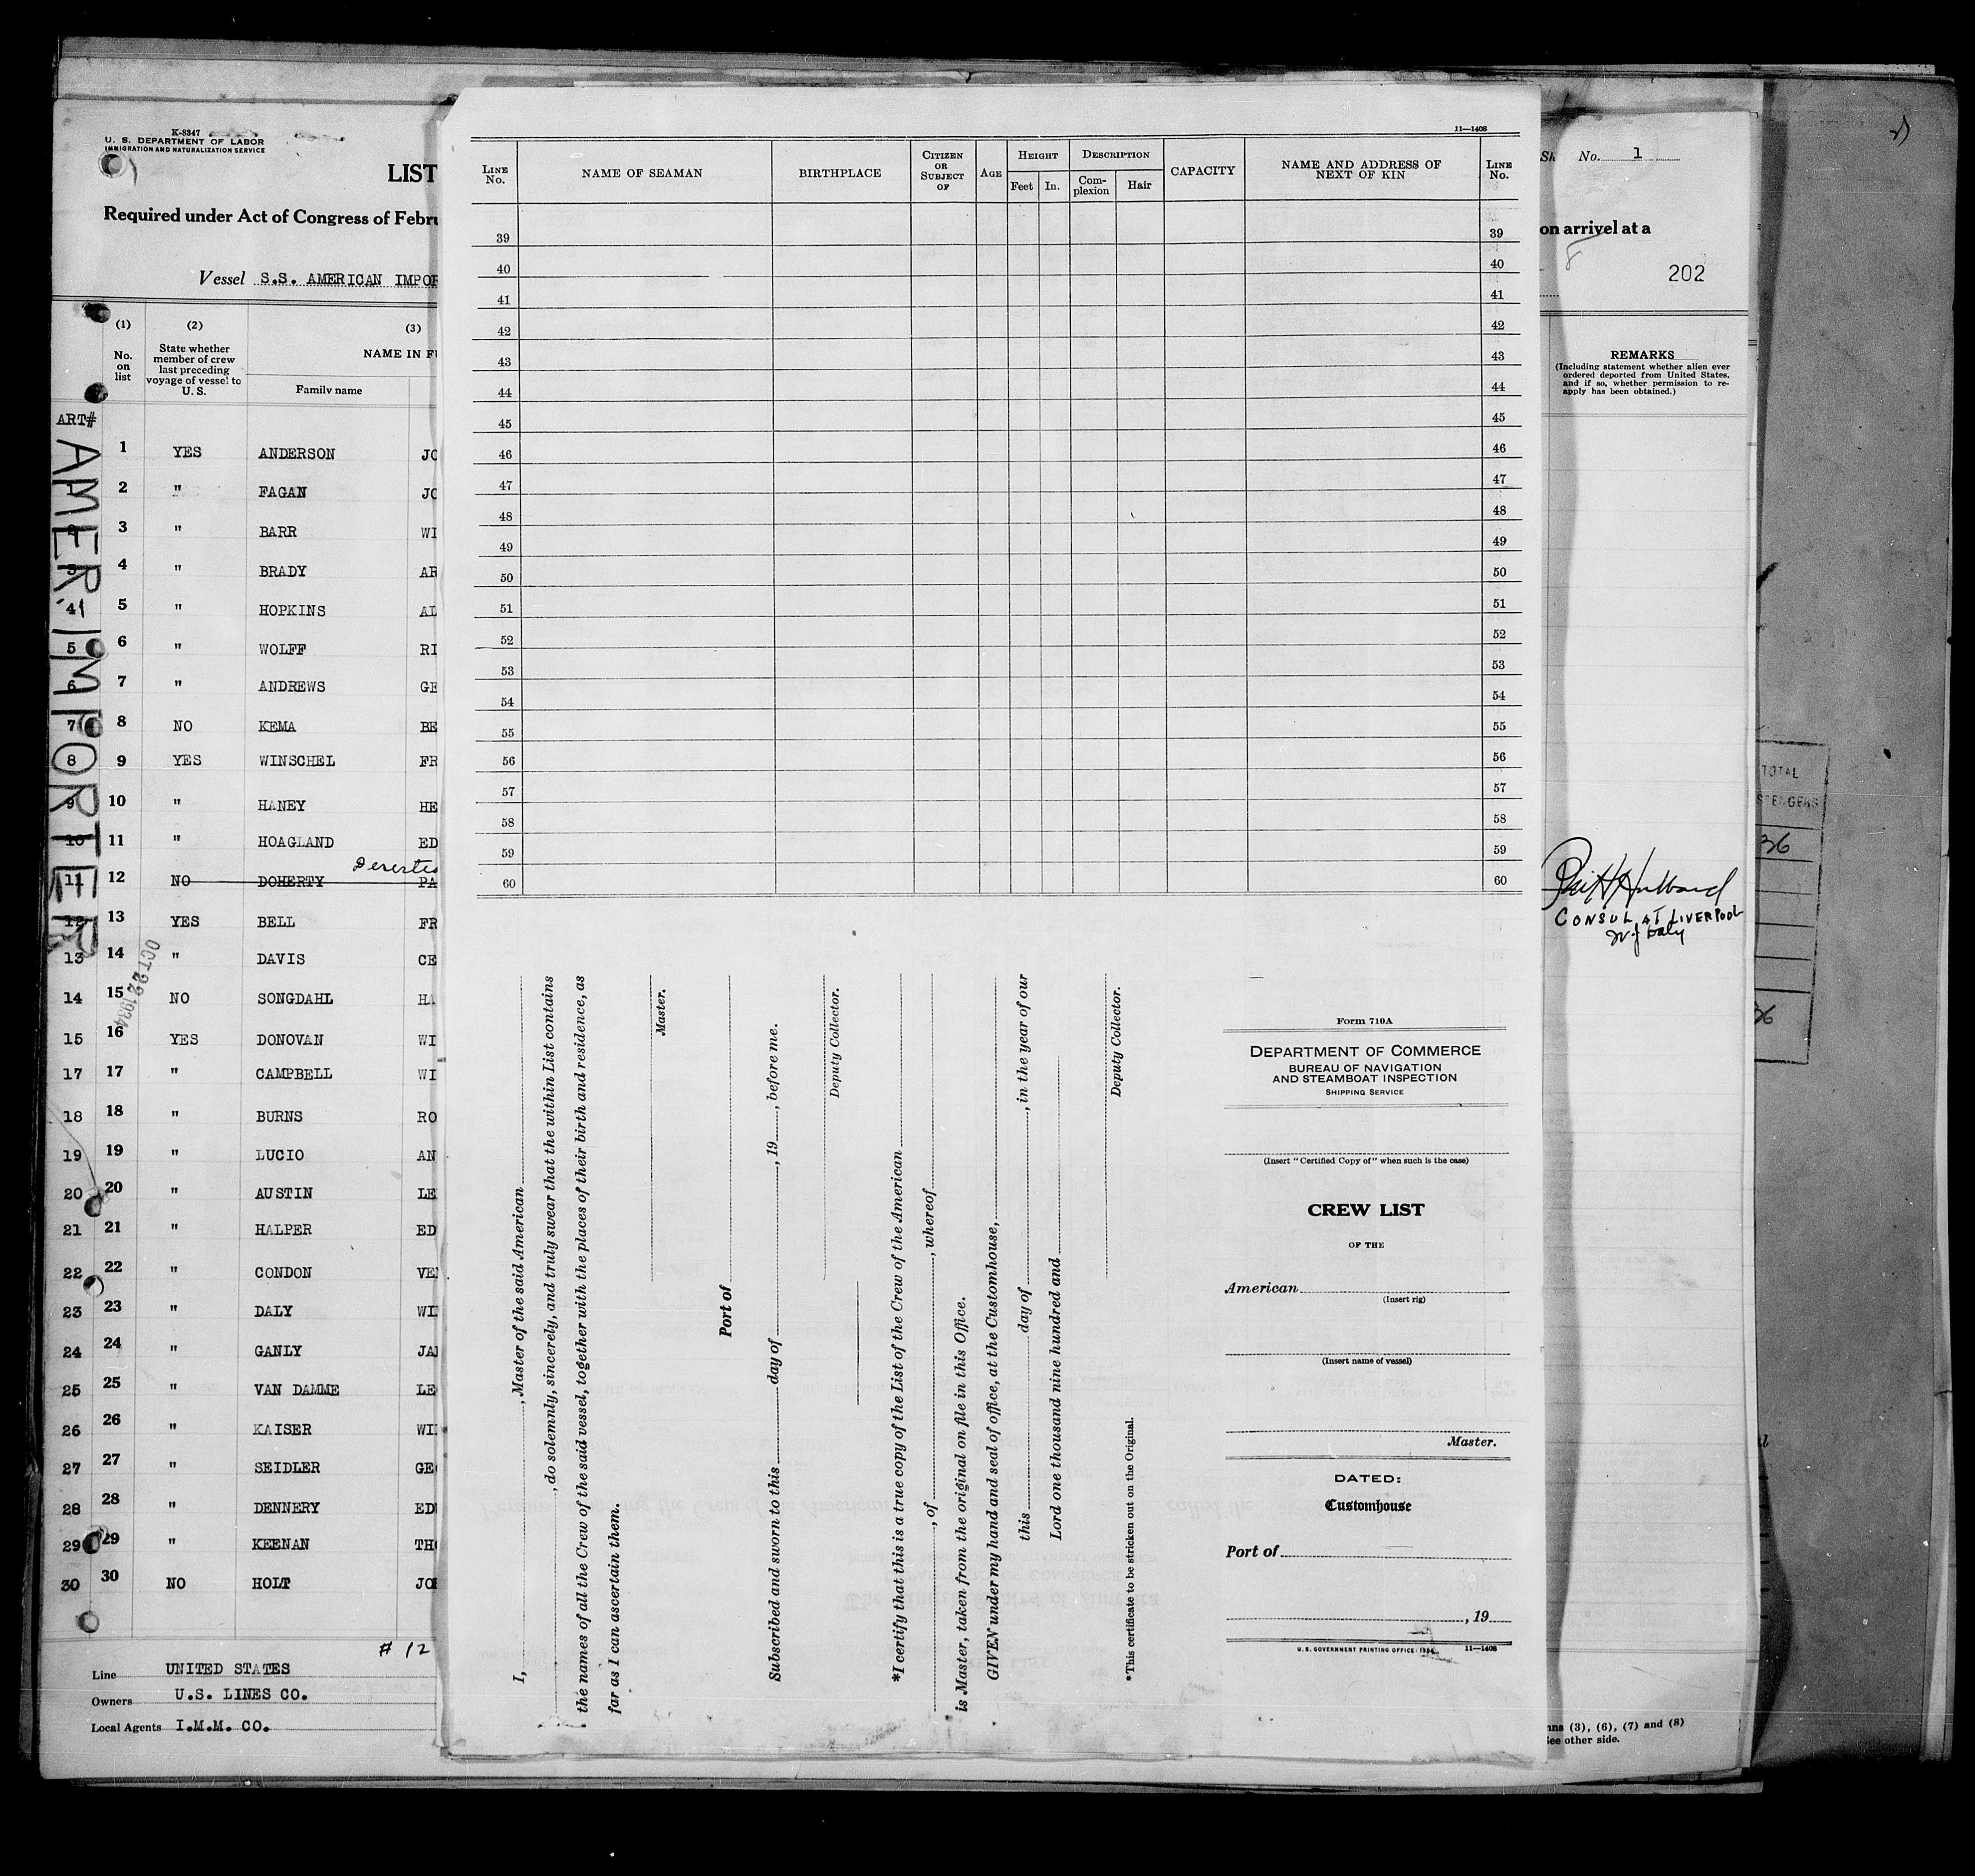 K-8347
U. S. DEPARTMENT OF LABOR
IMMIGRATION AND NATURALIZATION SERVICE
LIST
Required under Act of Congress of Febru
Vessel S.S. AMERICAN IMPOR
(1) (2) (3)
No. on list
State whether member of crew last preceding voyage of vessel to U. S.
NAME IN FU
Family name
ART#
AMER. IMPORTER
1 YES ANDERSON JO
2 " FAGAN JO
3 " BARR WI
3 4 " BRADY AR
4 5 " HOPKINS AL
5 6 " WOLFF RI
6 7 " ANDREWS GE
7 8 NO KEMA BE
8 9 YES WINSCHEL FR
9 10 " HANEY HE
10 11 " HOAGLAND ED
11 12 NO DOHERTY PA
12 13 YES BELL FR
13 14 " DAVIS CE
14 15 NO SONGDAHL HA
OCT 22 1934
15 16 YES DONOVAN WI
17 17 " CAMPBELL WI
18 18 " BURNS RO
19 19 " LUCIO AN
20 20 " AUSTIN LE
21 21 " HALPER ED
22 22 " CONDON VE
23 23 " DALY WI
24 24 " GANLY JA
25 25 " VAN DAMME LE
26 26 " KAISER WI
27 27 " SEIDLER GE
28 28 " DENNERY ED
29 29 " KEENAN TH
30 30 NO HOLT JO
# 12
Line UNITED STATES
Owners U.S. LINES CO.
Local Agents I.M.M. CO.
11—1408
LINE No.
NAME OF SEAMAN
BIRTHPLACE
CITIZEN OR SUBJECT OF
AGE
HEIGHT
Feet In.
DESCRIPTION
Com-plexion Hair
CAPACITY
NAME AND ADDRESS OF NEXT OF KIN
LINE No.
39 39
40 40
41 41
42 42
43 43
44 44
45 45
46 46
47 47
48 48
49 49
50 50
51 51
52 52
53 53
54 54
55 55
56 56
57 57
58 58
59 59
60 60
I, , Master of the said American
, do solemnly, sincerely, and truly swear that the within List contains
the names of all the Crew of the said vessel, together with the places of their birth and residence, as
far as I can ascertain them.
Master.
Port of
Subscribed and sworn to this day of , 19 , before me.
Deputy Collector.
*I certify that this is a true copy of the List of the Crew of the American
, of , whereof
is Master, taken from the original on file in this Office.
GIVEN under my hand and seal of office, at the Customhouse,
this day of , in the year of our
Lord one thousand nine hundred and
Deputy Collector.
*This certificate to be stricken out on the Original.
Form 710A
DEPARTMENT OF COMMERCE
BUREAU OF NAVIGATION
AND STEAMBOAT INSPECTION
SHIPPING SERVICE
(Insert "Certified Copy of" when such is the case)
CREW LIST
OF THE
American
(Insert rig)
(Insert name of vessel)
Master.
DATED:
Customhouse
Port of
, 19
U. S. GOVERNMENT PRINTING OFFICE: 1934 11—1408
Sh No. 1
on arrival at a
8
202
REMARKS
(Including statement whether alien ever
ordered deported from United States,
and if so, whether permission to re-
apply has been obtained.)
Hubbard
CONSUL AT LIVERPOOL
W.J. Daly
TOTAL
36
36
mns (3), (6), (7) and (8)
See other side.